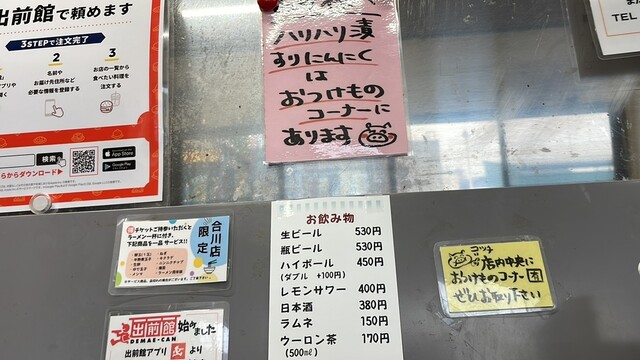 出前館で頼めます
3STEPで注文完了
2
名前や
お届け先住所など
必要な情報を登録する
3
お店の一覧から
食べたい料理を
注文する
検索
App Store
Google Play
らからダウンロード
ハリハリ漬
すりにんにく
は
おつけもの
コーナーに
あります
TEL
チケットご持参いただくと
ラーメン一杯に付き、
下記商品を一品サービス!!
合川店
限定
お飲み物
生ビール 530円
瓶ビール 530円
ハイボール 450円
(ダブル +100円)
レモンサワー 400円
日本酒 380円
ラムネ 150円
ウーロン茶 170円
(500㎖)
コッチ
店内中央に
おつけものコーナー有
ぜひお取り下さい
出前館
DEMAE-CAN
始めました
出前館アプリ より